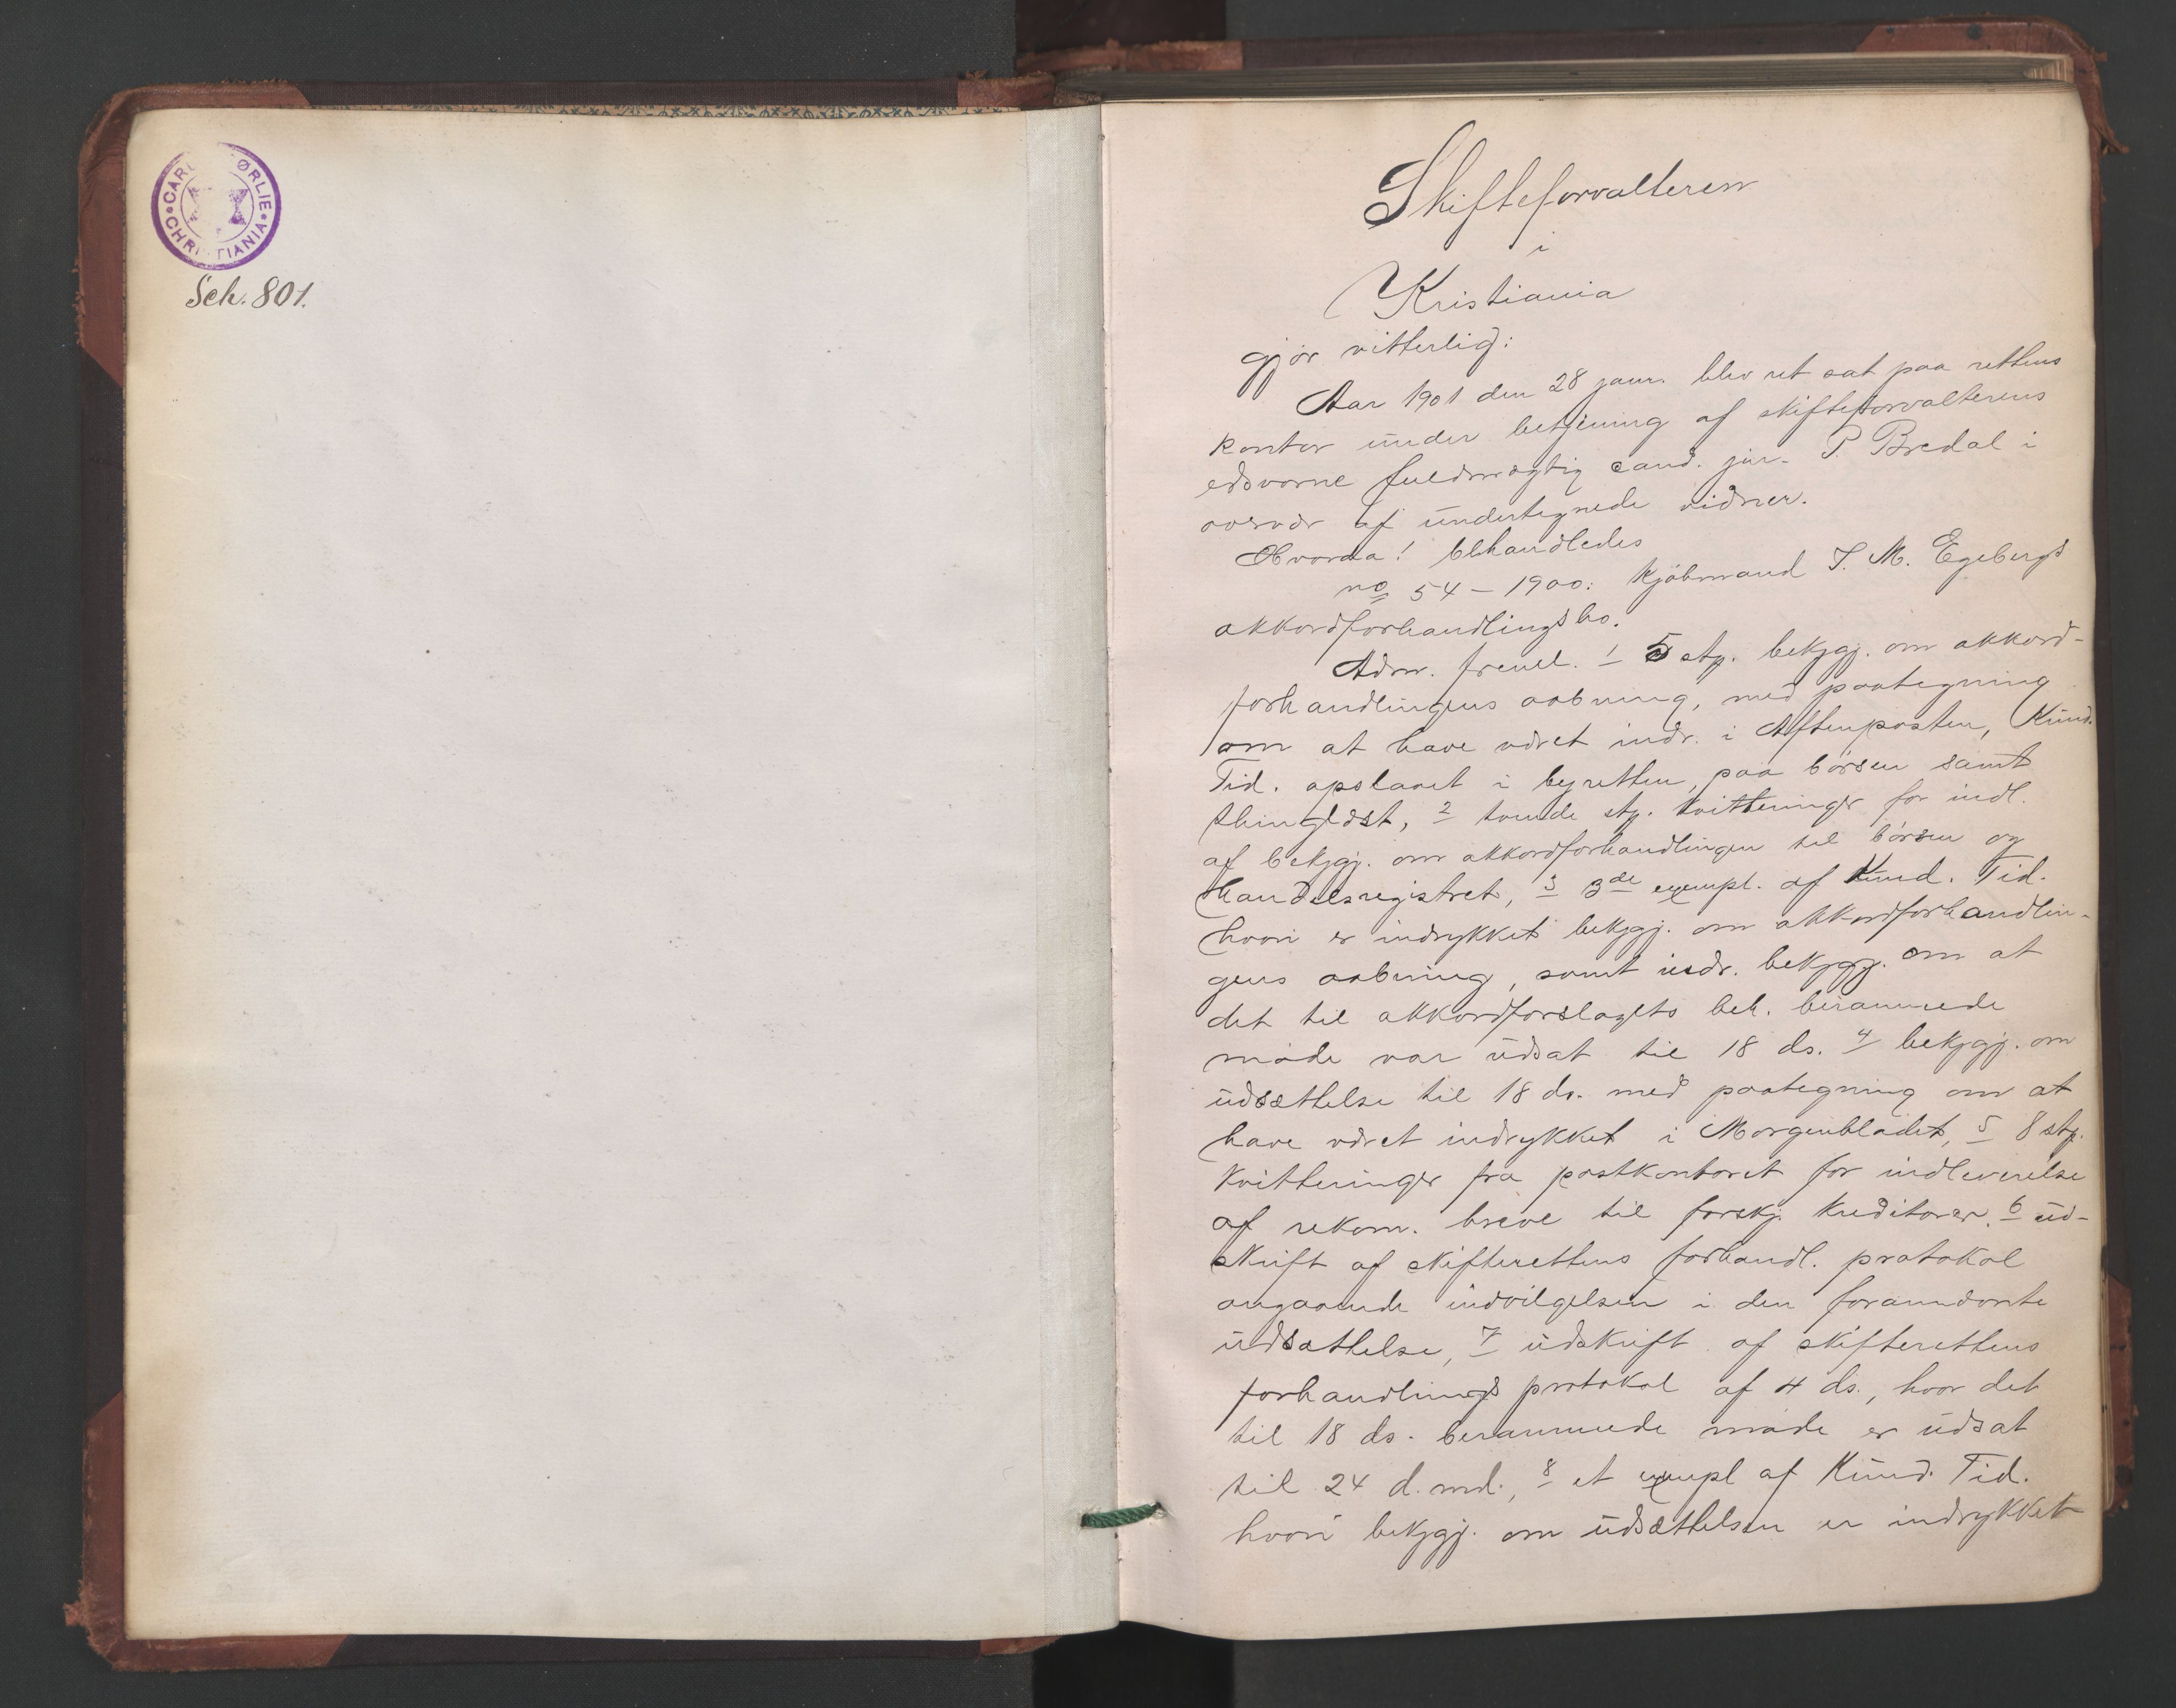 CARL ØRLIE
CHRI TIANIA
Sch. 801.
Skifteforvalteren
i
Kristiania
gjør vitterlig:
Aar 1901 den 28 janr. blev ret sat paa rettens
kontor under betjening af skifteforvalterens
edsvorne fuldmægtig cand. jur. P. Bredal i
overvær af undertegnede vidner.
Hvorda! behandledes
no 54 – 1900: Kjøbmand J. M. Egebergs
akkordforhandlingsbo.
Adm. freml. 1 5 stp. bekjgj. om akkord-
forhandlingens aabning, med paategning
om at have været indr. i Aftenposten, Kund.
Tid. opslaaet i byretten, paa børsen samt
thinglæst, 2 tvende stp. kvitteringer for indl.
af bekjgj. om akkordforhandlingen til børsen og
Handelsregistret, 3 3de exempl. af Kund. Tid.
hvori er indrykket bekjgj. om akkordforhandlin-
gens aabning, samt indr. bekjgj. om at
det til akkordforslagets beh. berammede
møde var udsat til 18 ds. 4 bekjgj. om
udsættelse til 18 ds. med paategning om at
have været indrykket i Morgenbladet, 5 8 stp.
kvitteringer fra postkontoret for indleverelse
af rekom. breve til forskj. kreditorer. 6 ud-
skrift af skifterettens forhandl. protokol
angaaende indvilgelsen i den foranndvnte
udsættelse, 7 udskrift af skifterettens
forhandlings protokol af 4 ds., hvor det
til 18 ds. berammede møde er udsat
til 24 d. md., 8 et exempl af Kund. Tid.
hvori bekjgj. om udsættelsen er indrykket